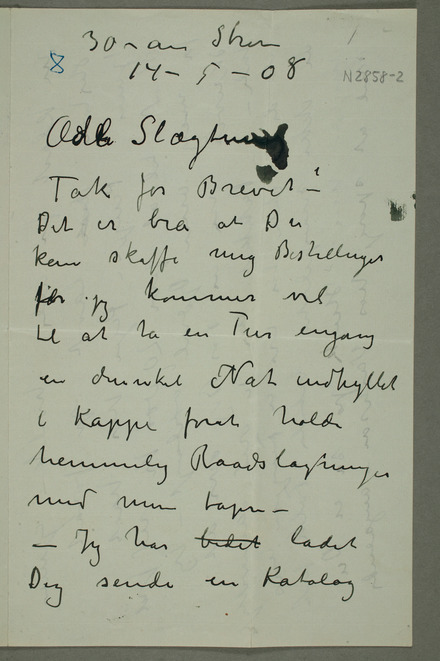 30 am Strom
8
14 – 5 – 08
N2858-2
Ædle Slægtning
Tak for Brevet –!
Det er bra at Du
kan skaffe mig Bestillinger
for jeg kommer vel
til at ta en Tur engang
en dunkel Nat indhyllet
i Kappe forat holde
hemmelig Raadslagninger
med min tapre –
– Jeg har bedet ladet
Dig sende en Katalog